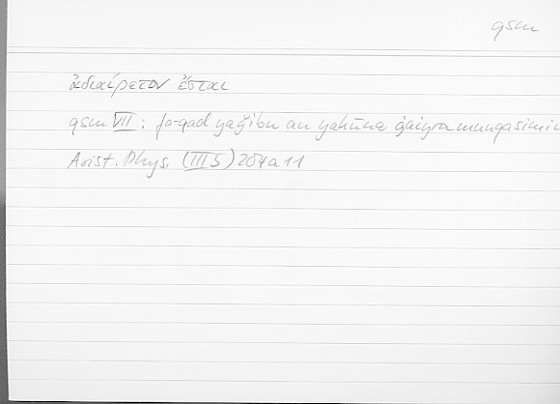 qsm
ἀδιαίρετον ἔσται
qsm VII: fa-qad yaǧibu an yakūna ġaiyra munqasimin
Arist. Phys. (III 5) 204 a 11